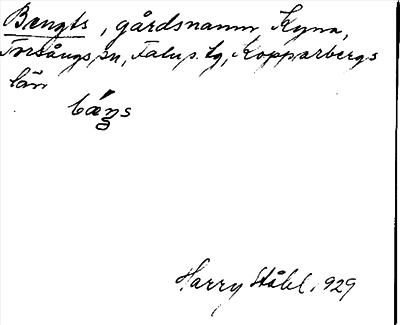 Bængts, gårdsnamn Kyna,
Torsångs sn, Falu s. tg, Kopparbergs
län
bǽŋs
Harry Ståhl, 1929